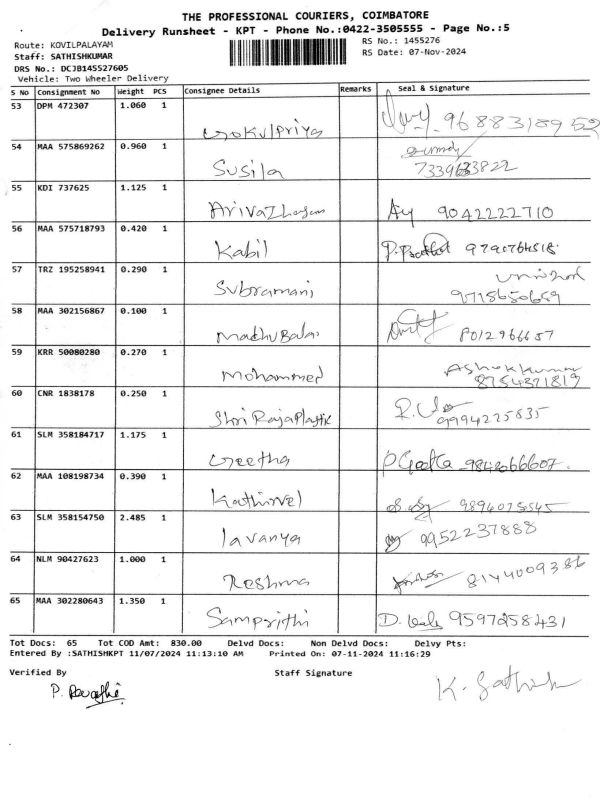 THE PROFESSIONAL COURIERS, COIMBATORE
Delivery Runsheet - KPT - Phone No.:0422-3505555 - Page No.:5
Route: KOVILPALAYAM
RS No.: 1455276
Staff: SATHISHKUMAR
RS Date: 07-Nov-2024
DRS No.: DCJB145527605
Vehicle: Two Wheeler Delivery
S No Consignment No Weight PCS Consignee Details Remarks Seal & Signature
53 DPM 472307 1.060 1
Gokulpriya 9688318952
54 MAA 575869262 0.960 1
Susila
55 KDI 737625 1.125 1
Arivazhagan 9042222710
56 MAA 575718793 0.420 1
Kabil 9790764518
57 TRZ 195258941 0.290 1
Subramani
9715650659
58 MAA 302156867 0.100 1
MadhuBala
59 KRR 50080280 0.270 1
Mohammed Ashokkumar
8754371819
60 CNR 1838178 0.250 1
Shri RajaPlastic 9994225835
61 SLM 358184717 1.175 1
Geetha P Geetha
62 MAA 108198734 0.390 1
Kathirvel
63 SLM 358154750 2.485 1
lavanya 9952237888
64 NLM 90427623 1.000 1
Reshma 8144009386
65 MAA 302280643 1.350 1
Samprithi D. 9597258431
Tot Docs: 65 Tot COD Amt: 830.00 Delvd Docs: Non Delvd Docs: Delvy Pts:
Entered By :SATHISHKPT 11/07/2024 11:13:10 AM Printed On: 07-11-2024 11:16:29
Verified By Staff Signature
P. Revathi K. Sathish